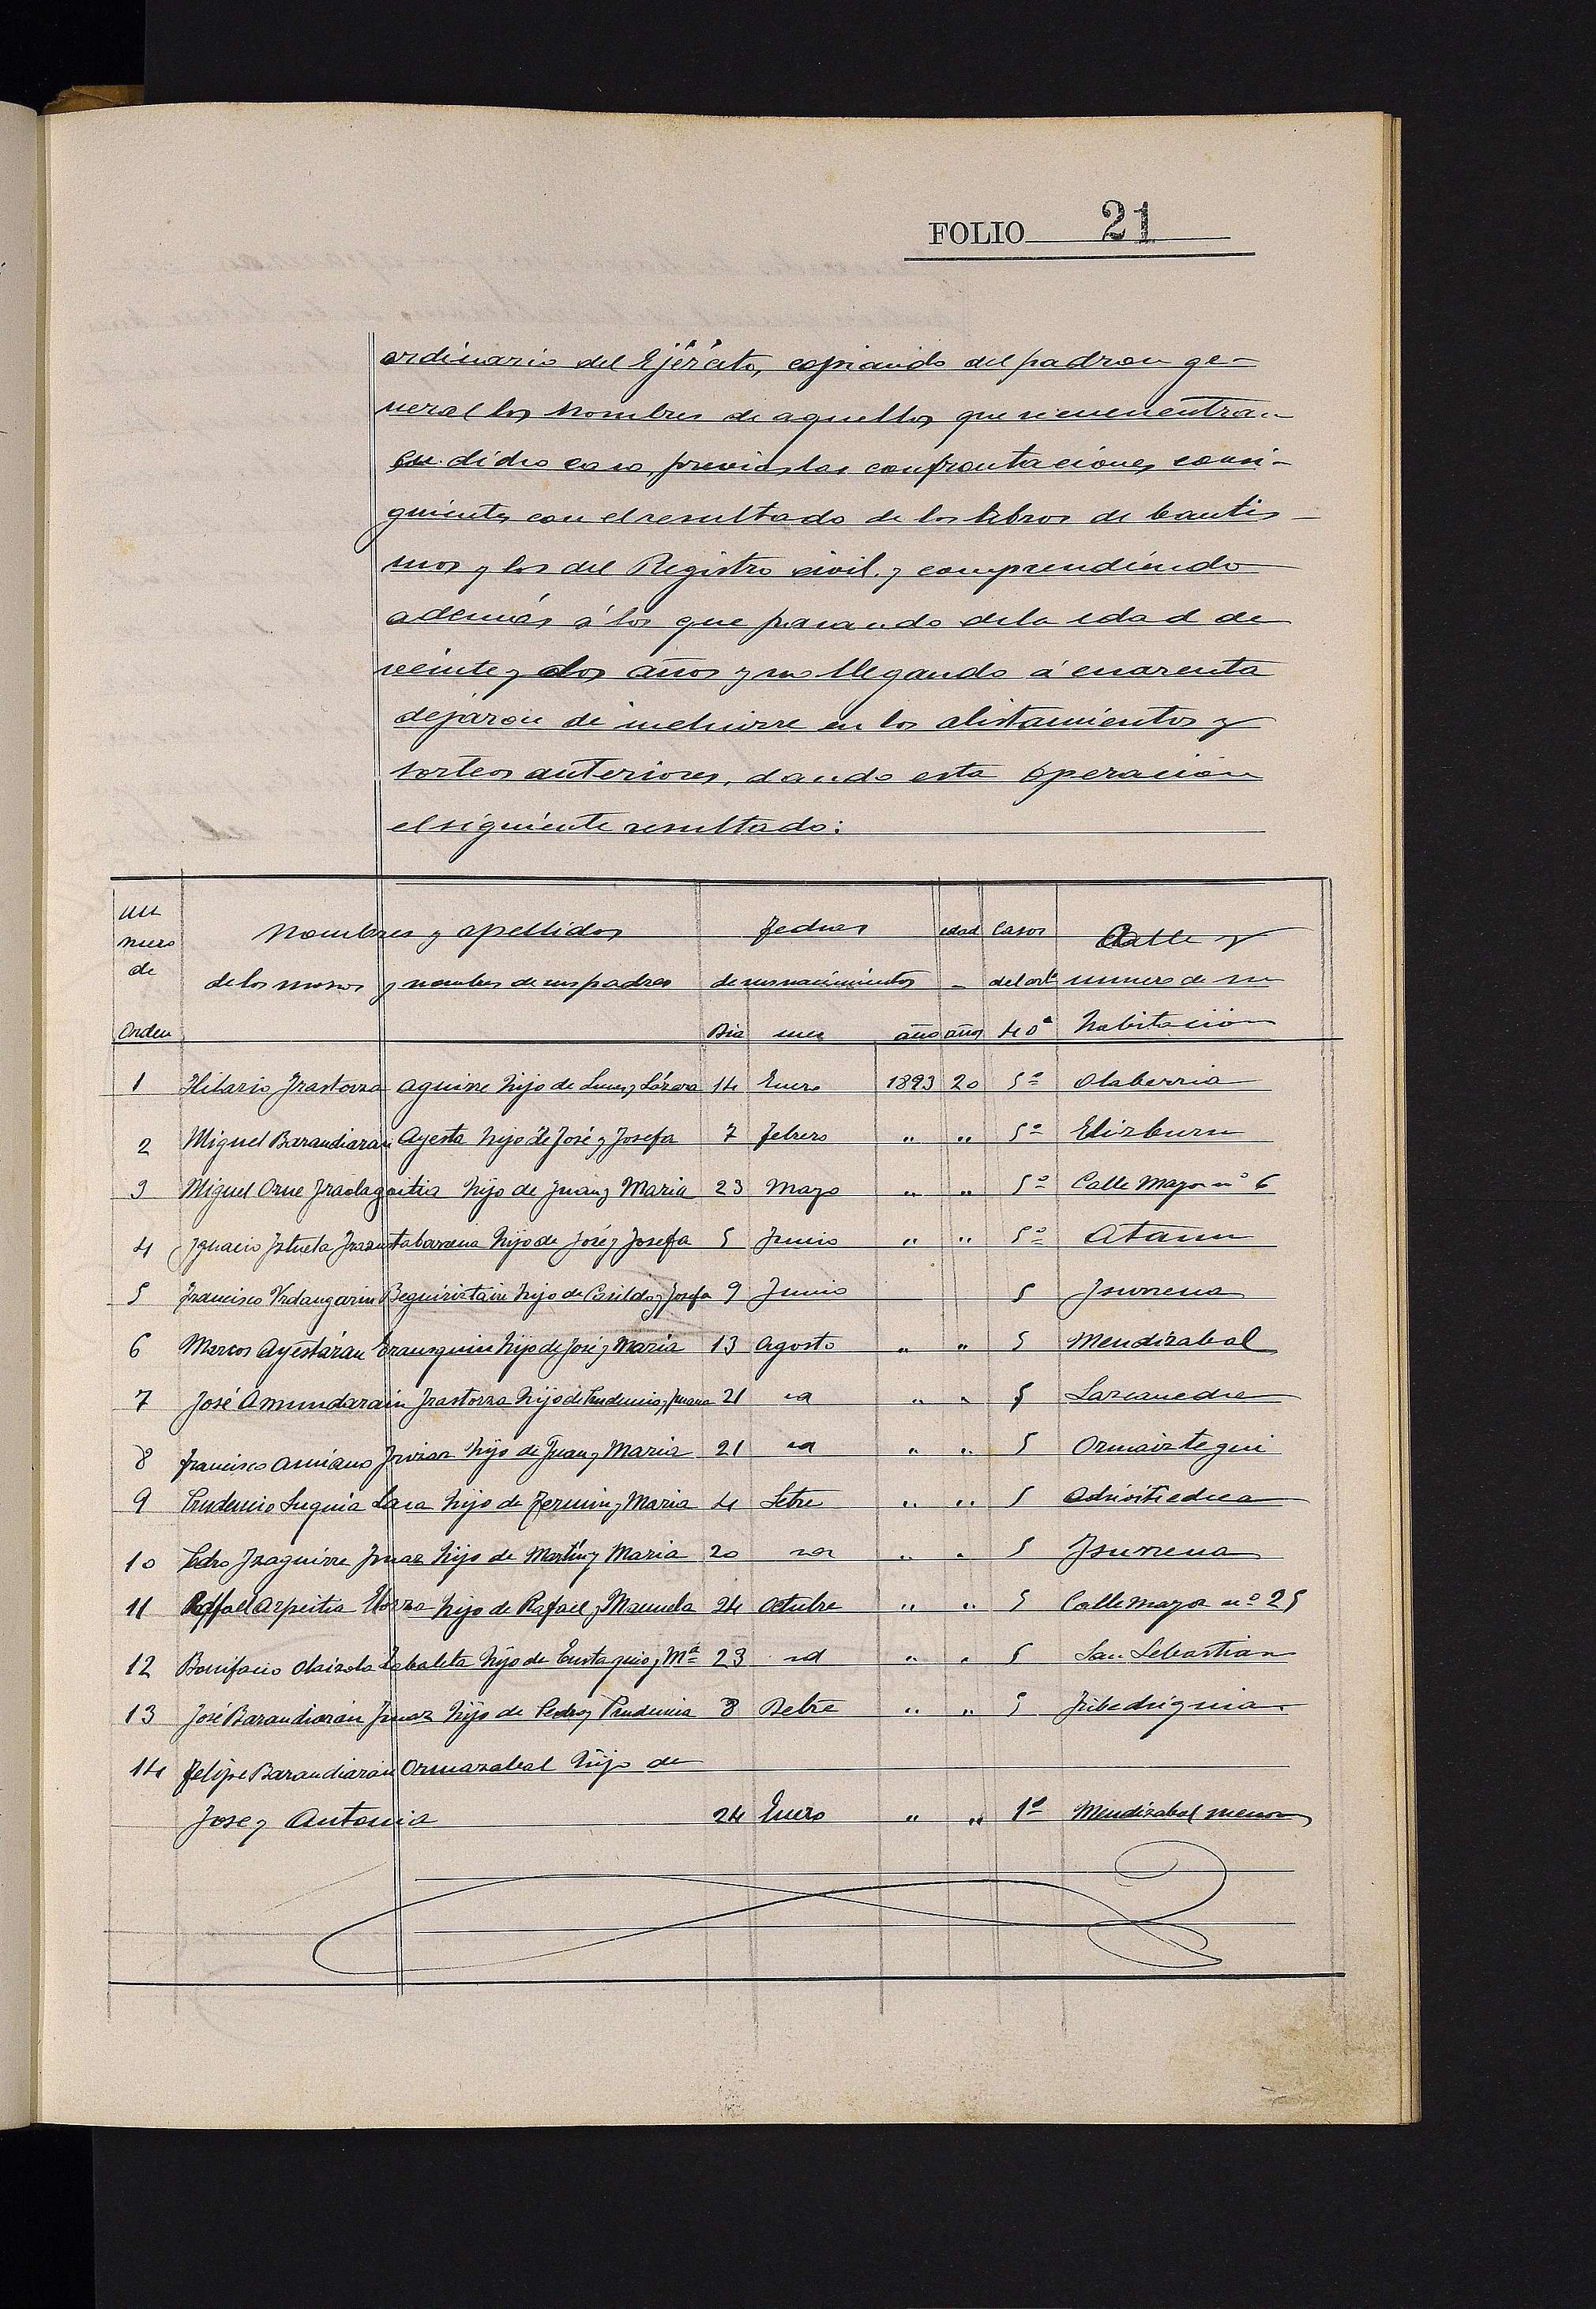 FOLIO 21
ordinario del Ejército, copiando del padron ge-
neral los nombres de aquellos que se encuentran
en dicho caso, previas las confrontaciones consi-
guientes con el resultado de los libros de bautis-
mos y los del Registro civil y comprendiendo
además á los que pasando de la edad de
veinte y dos años y no llegando á cuarenta
dejaron de incluirse en los alistamientos y
sorteos anteriores, dando esta operacion
el siguiente resultado:
Nu
mero de Orden Nombres y apellidos de los mozos y nombres de sus padres Fechas de sus nacimientos Dia mes año edad años Casos del artº 40º Calle y numero de su habitacion
1 Hilario Irastorza Aguirre hijo de Lucas y Lázara 14 Enero 1893 20 5º Olaberria
2 Miguel Barandiarán Ayesta hijo de José y Josefa 7 febrero " " 5º Elizburu
3 Miguel Orue Iraolagoitia hijo de Juan y Maria 23 Mayo " " 5º Calle Mayor nº 6
4 Ignacio Iztueta Irazustabarrena hijo de José y Josefa 5 Junio " " 5º Ataun
5 Francisco Urdangarin Beguiristain hijo de Casildo y Josefa 9 Junio 5 Isurrena
6 Marcos Ayestarán Erausquin hijo de José y Maria 13 Agosto " " 5 Mendizabal
7 José Amundarain Irastorza hijo de Prudencio y Juana 21 id " " 5
8 Francisco hijo de Juan y Maria 21 id " " 5 Ormaiztegui
9 Prudencio Luquia Lasa hijo de Fermin y Maria 4 Setre " " 5
10 Pedro Izaguirre hijo de Martin y Maria 20 id " " 5 Isurrena
11 Raffael Azpeitia Elorza hijo de Rafael y Manuela 24 Octubre " " 5 Calle mayor nº 25
12 Bonifacio Olaizola Zabaleta hijo de Eustaquio y Mª 23 id " " 5 San Sebastian
13 José Barandiarán hijo de Pedro y Prudencia 8 Debre " " 5
14 Felipe Barandiarán Ormazabal hijo de
Jose y Antonia 24 Enero " " 1º Mendizabal menor